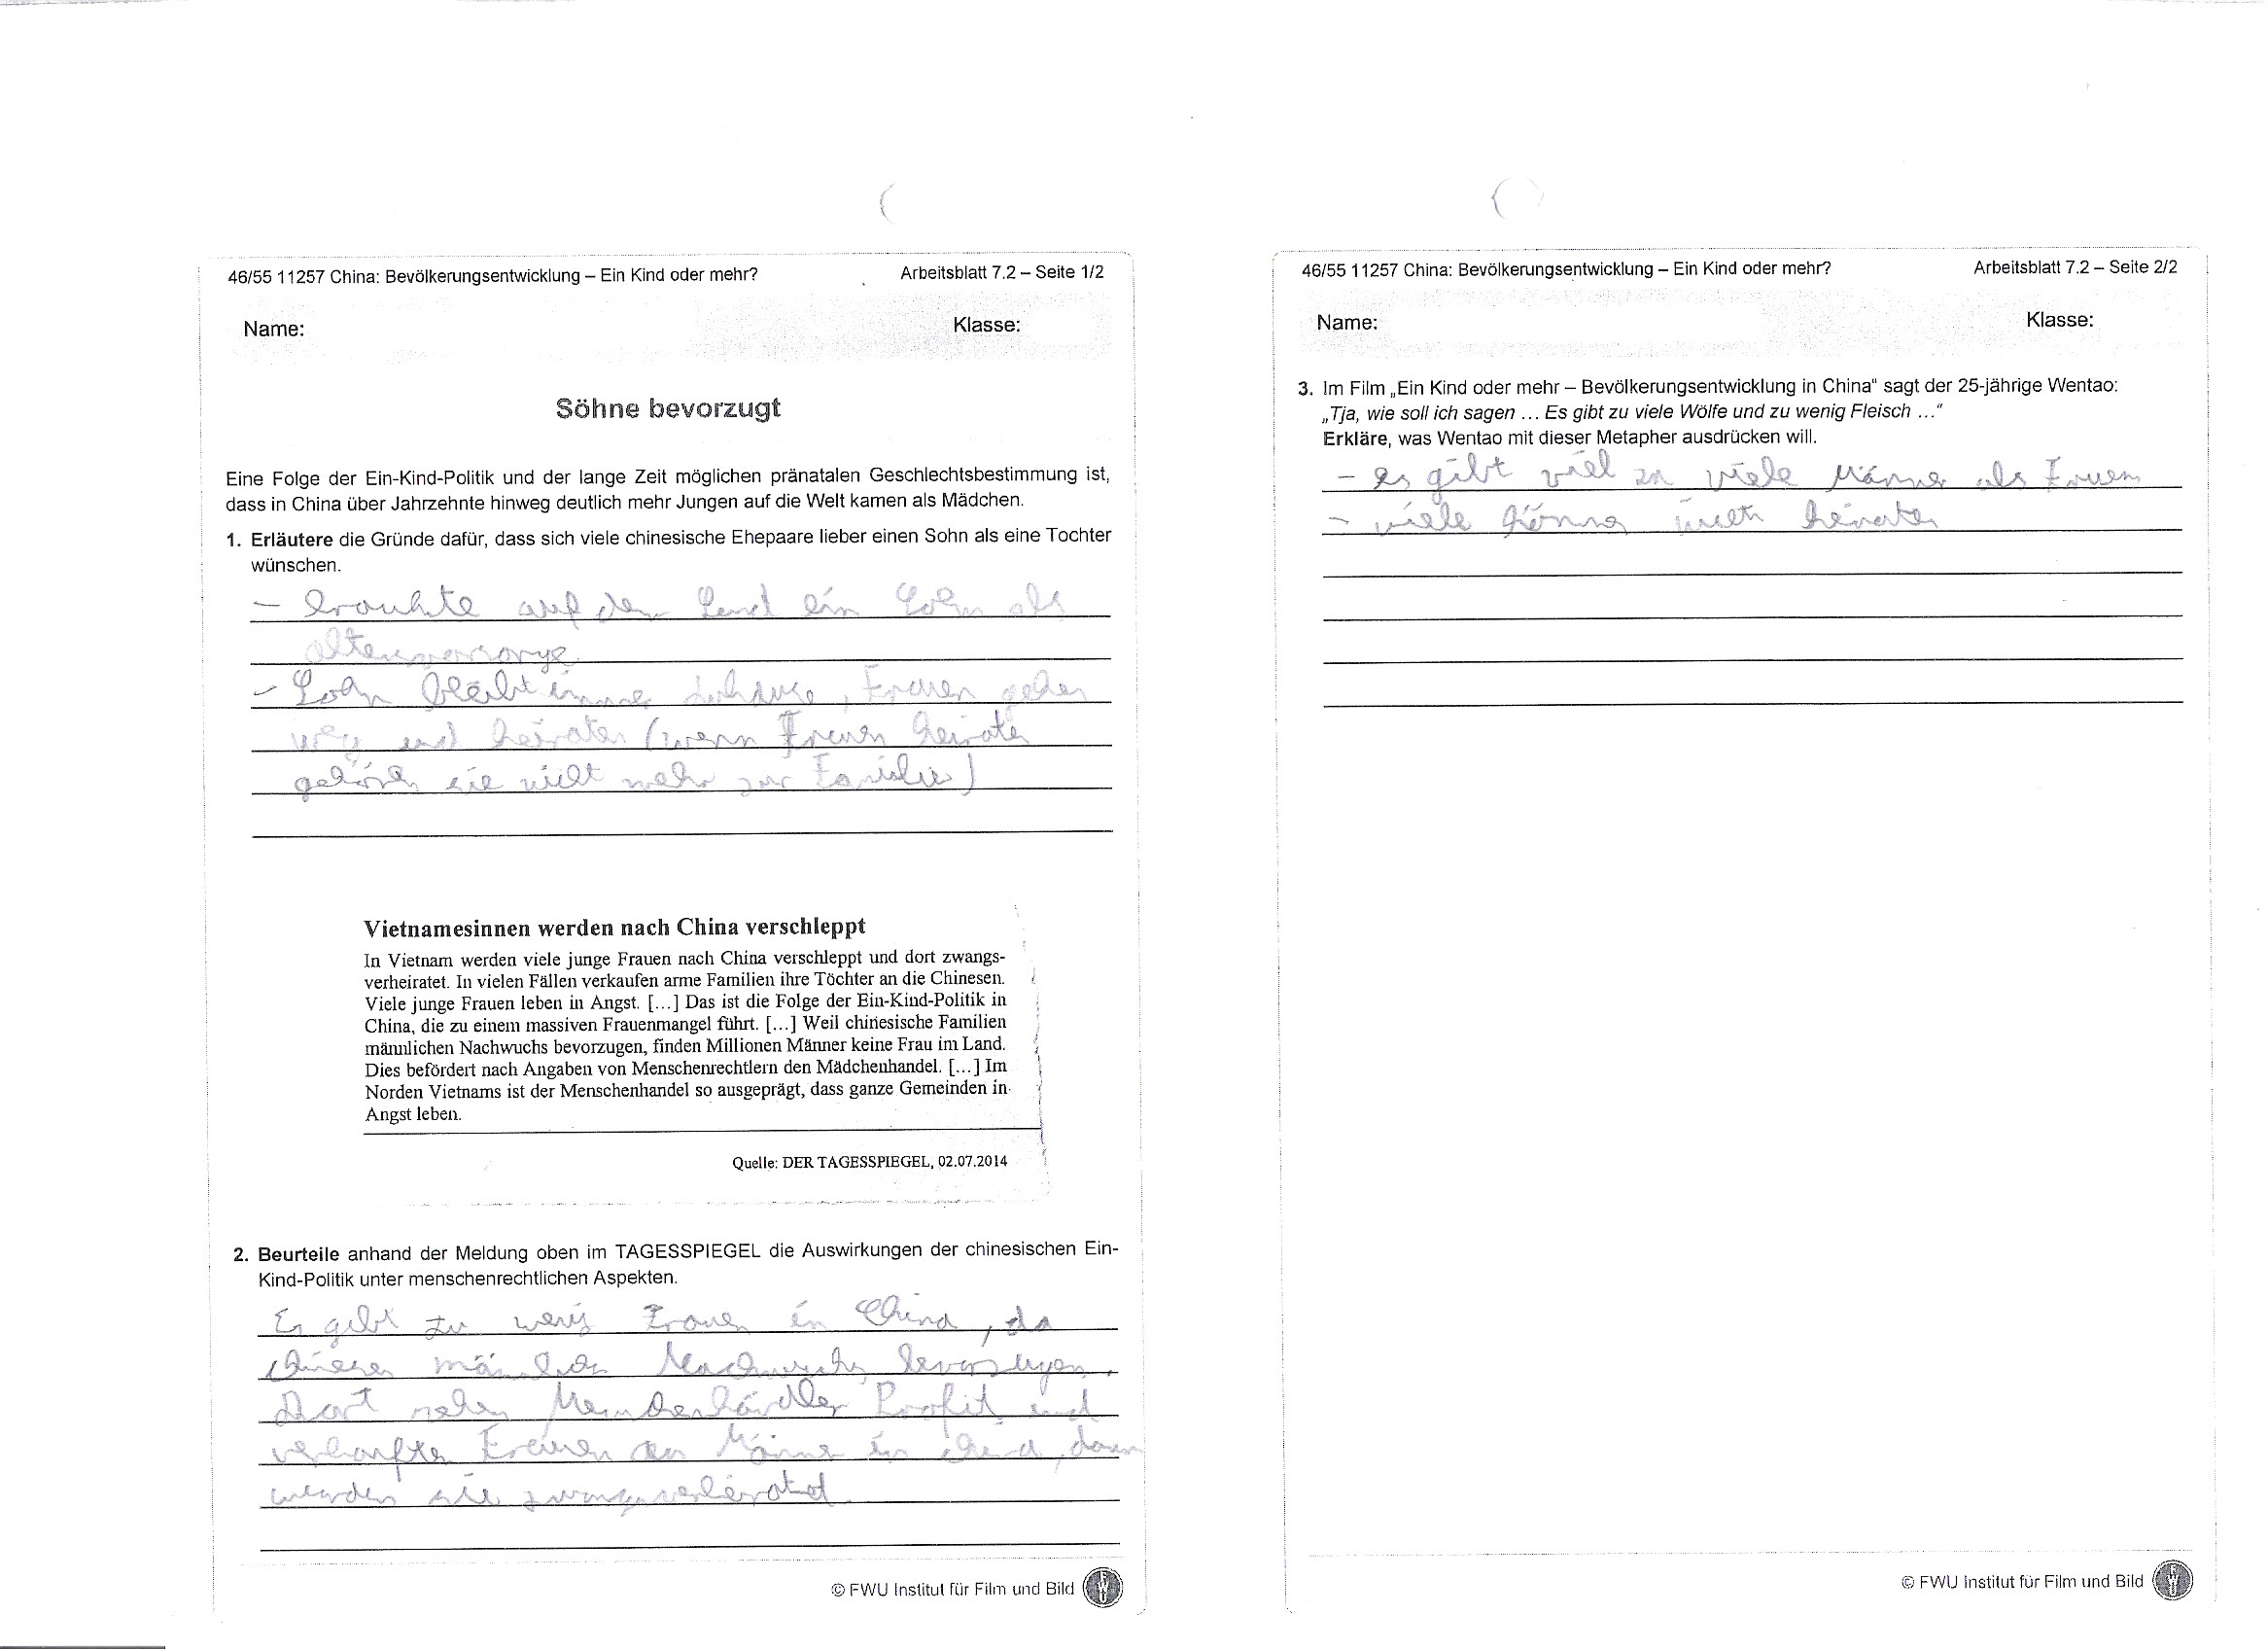 46/55 11257 China: Bevölkerungsentwicklung – Ein Kind oder mehr? Arbeitsblatt 7.2 – Seite 1/2
Name: Klasse:
Söhne bevorzugt
Eine Folge der Ein-Kind-Politik und der lange Zeit möglichen pränatalen Geschlechtsbestimmung ist,
dass in China über Jahrzehnte hinweg deutlich mehr Jungen auf die Welt kamen als Mädchen.
1. Erläutere die Gründe dafür, dass sich viele chinesische Ehepaare lieber einen Sohn als eine Tochter
wünschen.
- brauchte auf dem Land ein Sohn als
altersvorsorge
- Sohn bleibt immer zuhause, Frauen gehen
weg und heiraten (wenn Frauen heiraten
gehören sie nicht mehr zur Familie)
Vietnamesinnen werden nach China verschleppt
In Vietnam werden viele junge Frauen nach China verschleppt und dort zwangs-
verheiratet. In vielen Fällen verkaufen arme Familien ihre Töchter an die Chinesen.
Viele junge Frauen leben in Angst. [...] Das ist die Folge der Ein-Kind-Politik in
China, die zu einem massiven Frauenmangel führt. [...] Weil chinesische Familien
männlichen Nachwuchs bevorzugen, finden Millionen Männer keine Frau im Land.
Dies befördert nach Angaben von Menschenrechtlern den Mädchenhandel. [...] Im
Norden Vietnams ist der Menschenhandel so ausgeprägt, dass ganze Gemeinden in
Angst leben.
Quelle: DER TAGESSPIEGEL, 02.07.2014
2. Beurteile anhand der Meldung oben im TAGESSPIEGEL die Auswirkungen der chinesischen Ein-
Kind-Politik unter menschenrechtlichen Aspekten.
Es gibt zu wenig Frauen in China, da
männlichen Nachwuchs bevorzugen.
Dort Profit und
Frauen an Männer in China, dann
werden sie zwangsverheiratet
© FWU Institut für Film und Bild
46/55 11257 China: Bevölkerungsentwicklung – Ein Kind oder mehr? Arbeitsblatt 7.2 – Seite 2/2
Name: Klasse:
3. Im Film „Ein Kind oder mehr – Bevölkerungsentwicklung in China“ sagt der 25-jährige Wentao:
„Tja, wie soll ich sagen ... Es gibt zu viele Wölfe und zu wenig Fleisch ...“
Erkläre, was Wentao mit dieser Metapher ausdrücken will.
- es gibt viel zu viele Männer als Frauen
- viele können nicht heiraten
© FWU Institut für Film und Bild